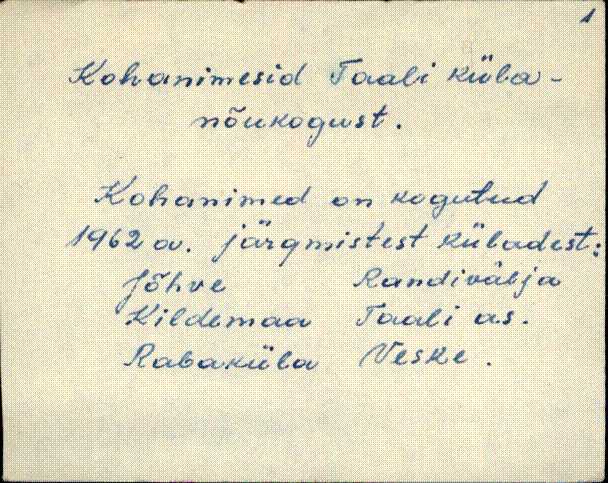 1
Kohanimesid Taali küla-
nõukogust.
Kohanimed on kogutud
1962 a. järgmistest küladest:
Jõhve Randivälja
Kildemaa Taali as.
Rabaküla Veske.